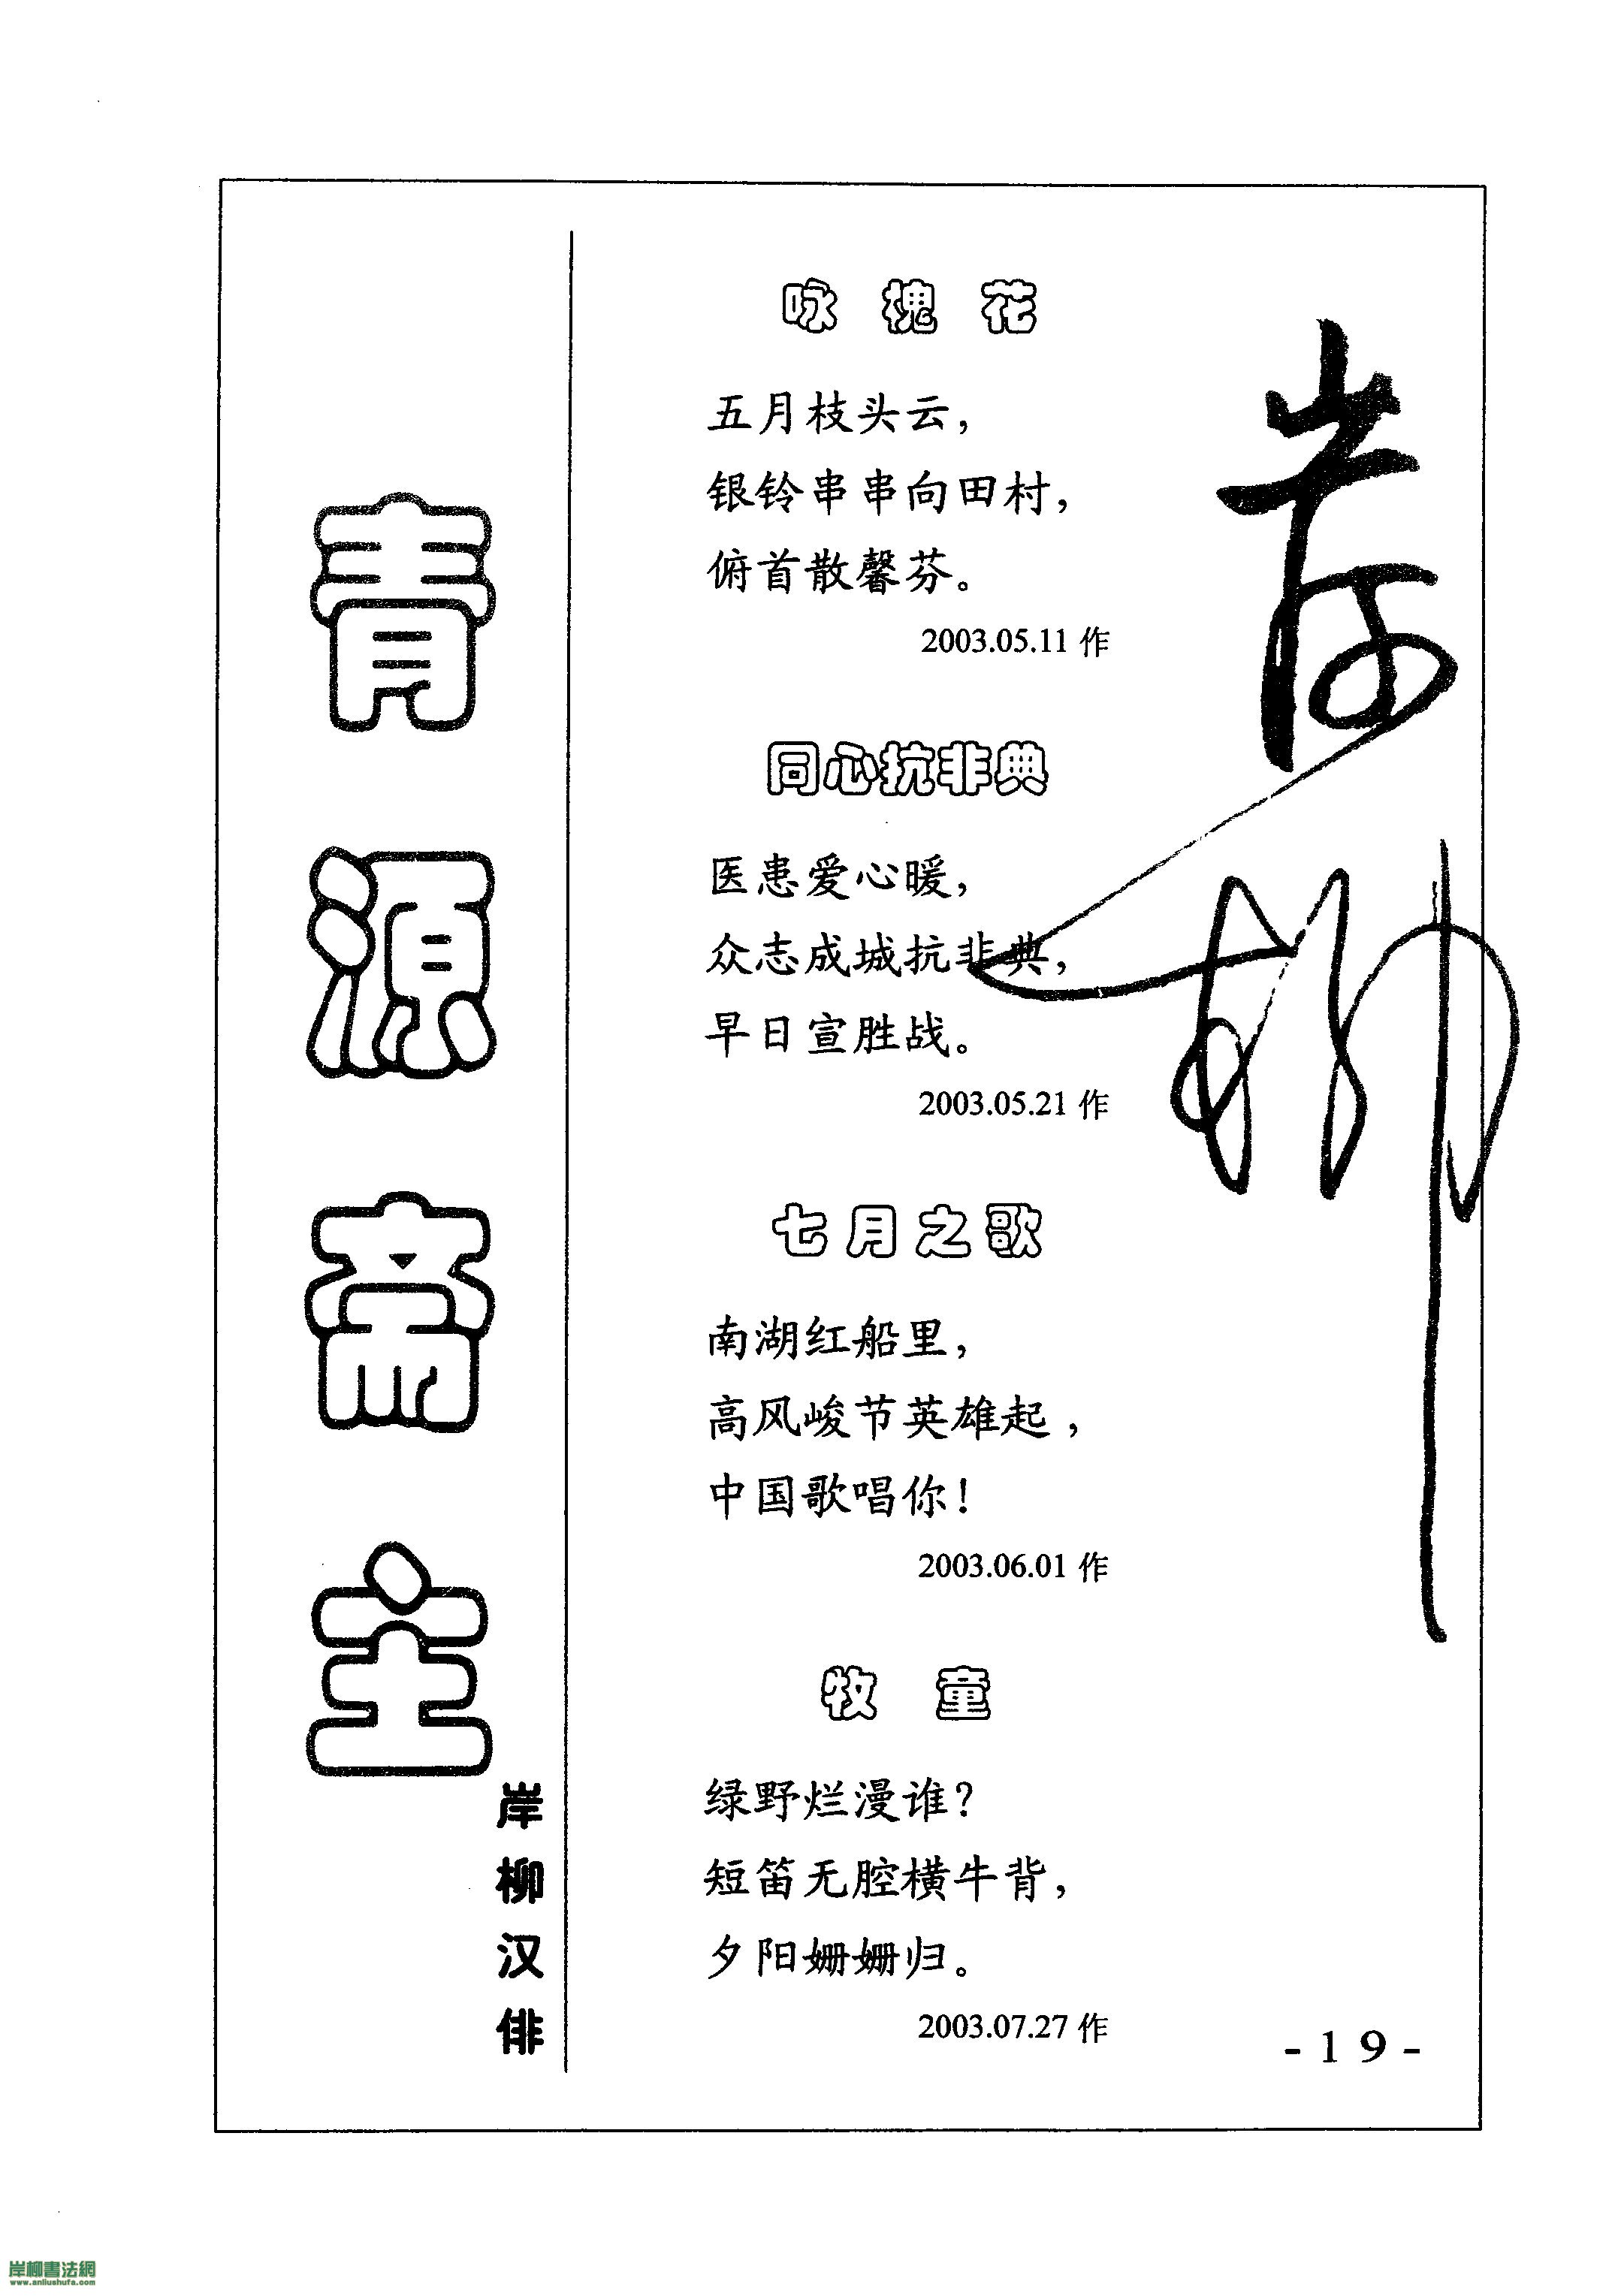 青源斋主
岸柳汉俳
咏槐花
五月枝头云，
银铃串串向田村，
俯首散馨芬。
2003.05.11 作
同心抗非典
医患爱心暖，
众志成城抗非典，
早日宣胜战。
2003.05.21 作
七月之歌
南湖红船里，
高风峻节英雄起，
中国歌唱你！
2003.06.01 作
牧童
绿野烂漫谁？
短笛无腔横牛背，
夕阳姗姗归。
2003.07.27 作
岸柳
-19-
岸柳書法網
www.anliushufa.com